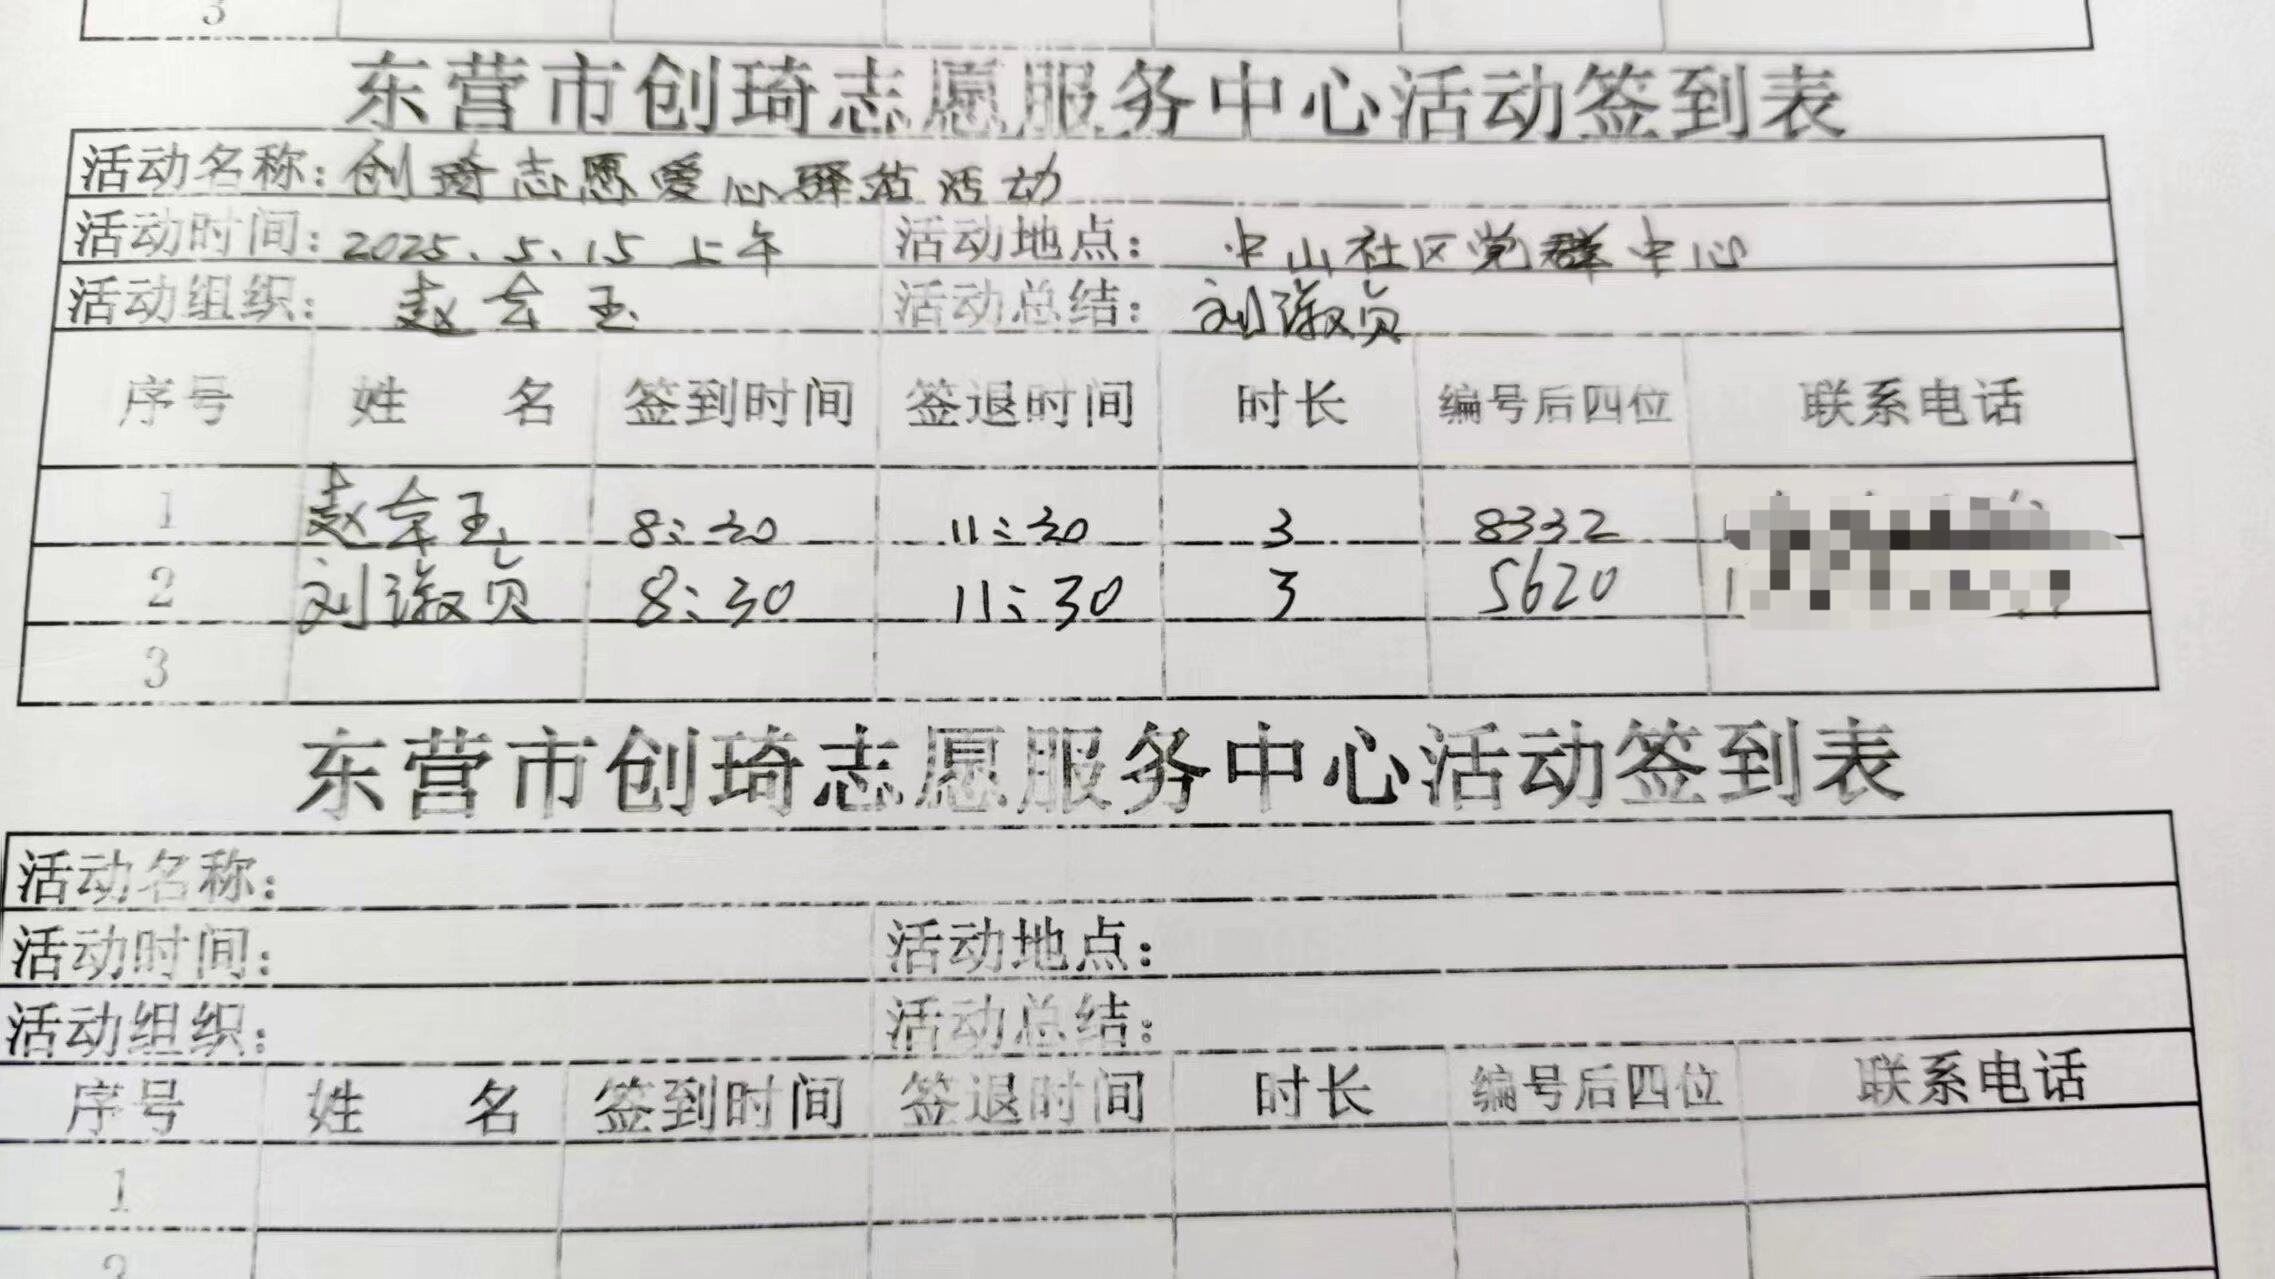 3
东营市创琦志愿服务中心活动签到表
活动名称：创琦志愿爱心驿站活动
活动时间：2025.5.15上午 活动地点：中山社区党群中心
活动组织：赵 玉 活动总结：刘淑贞
序号 姓 名 签到时间 签退时间 时长 编号后四位 联系电话
1 赵 玉 8:30 11:30 3 8332
2 刘淑贞 8:30 11:30 3 5620
3
东营市创琦志愿服务中心活动签到表
活动名称：
活动时间： 活动地点：
活动组织： 活动总结：
序号 姓 名 签到时间 签退时间 时长 编号后四位 联系电话
1
2